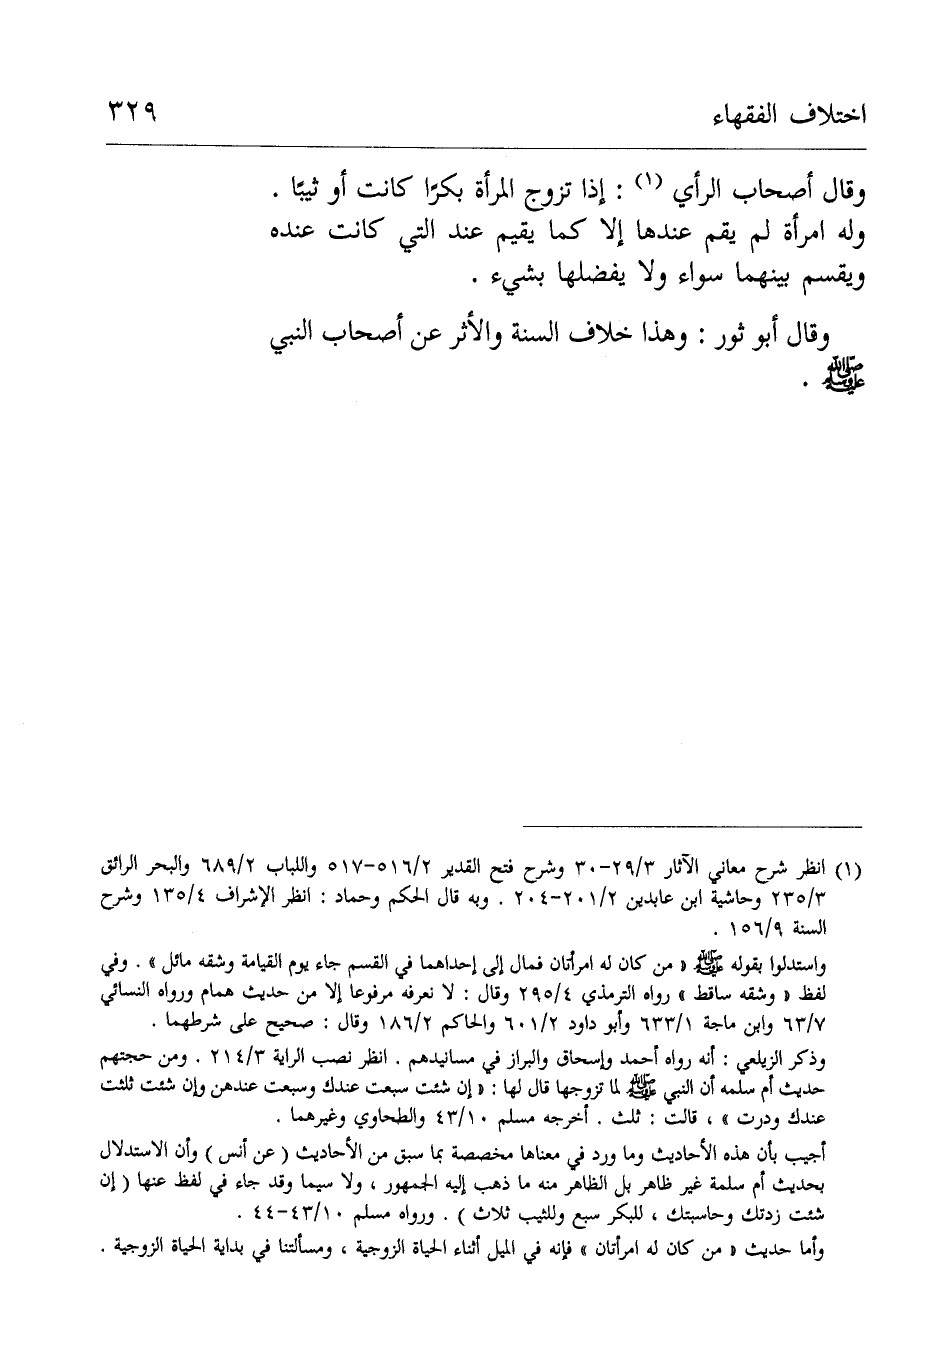 اختلاف الفقهاء ٣٢٩
وقال أصحاب الرأي (١) : إذا تزوج المرأة بكرًا كانت أو ثيبًا .
وله امرأة لم يقم عندها إلا كما يقيم عند التي كانت عنده
ويقسم بينهما سواء ولا يفضلها بشيء .
وقال أبو ثور : وهذا خلاف السنة والأثر عن أصحاب النبي
ﷺ .
(١) انظر شرح معاني الآثار ٢٩/٣-٣٠ وشرح فتح القدير ٥١٦/٢-٥١٧ واللباب ٦٨٩/٢ والبحر الرائق
٢٣٥/٣ وحاشية ابن عابدين ٢٠١/٢-٢٠٤ . وبه قال الحكم وحماد : انظر الإشراف ١٣٥/٤ وشرح
السنة ١٥٦/٩ .
واستدلوا بقوله ﷺ « من كان له امرأتان فمال إلى إحداهما في القسم جاء يوم القيامة وشقه مائل » . وفي
لفظ « وشقه ساقط » رواه الترمذي ٢٩٥/٤ وقال : لا نعرفه مرفوعا إلا من حديث همام ورواه النسائي
٦٣/٧ وابن ماجة ٦٣٣/١ وأبو داود ٦٠١/٢ والحاكم ١٨٦/٢ وقال : صحيح على شرطهما .
وذكر الزيلعي : أنه رواه أحمد وإسحاق والبراز في مسانيدهم . انظر نصب الراية ٢١٤/٣ . ومن حجتهم
حديث أم سلمه أن النبي ﷺ لما تزوجها قال لها : « إن شئت سبعت عندك وسبعت عندهن وإن شئت ثلثت
عندك ودرت » ، قالت : ثلث . أخرجه مسلم ٤٣/١٠ والطحاوي وغيرهما .
أجيب بأن هذه الأحاديث وما ورد في معناها مخصصة بما سبق من الأحاديث ( عن أنس ) وأن الاستدلال
بحديث أم سلمة غير ظاهر بل الظاهر منه ما ذهب إليه الجمهور ، ولا سيما وقد جاء في لفظ عنها ( إن
شئت زدتك وحاسبتك ، للبكر سبع وللثيب ثلاث ) . ورواه مسلم ٤٣/١٠-٤٤ .
وأما حديث « من كان له امرأتان » فإنه في الميل أثناء الحياة الزوجية ، ومسألتنا في بداية الحياة الزوجية .